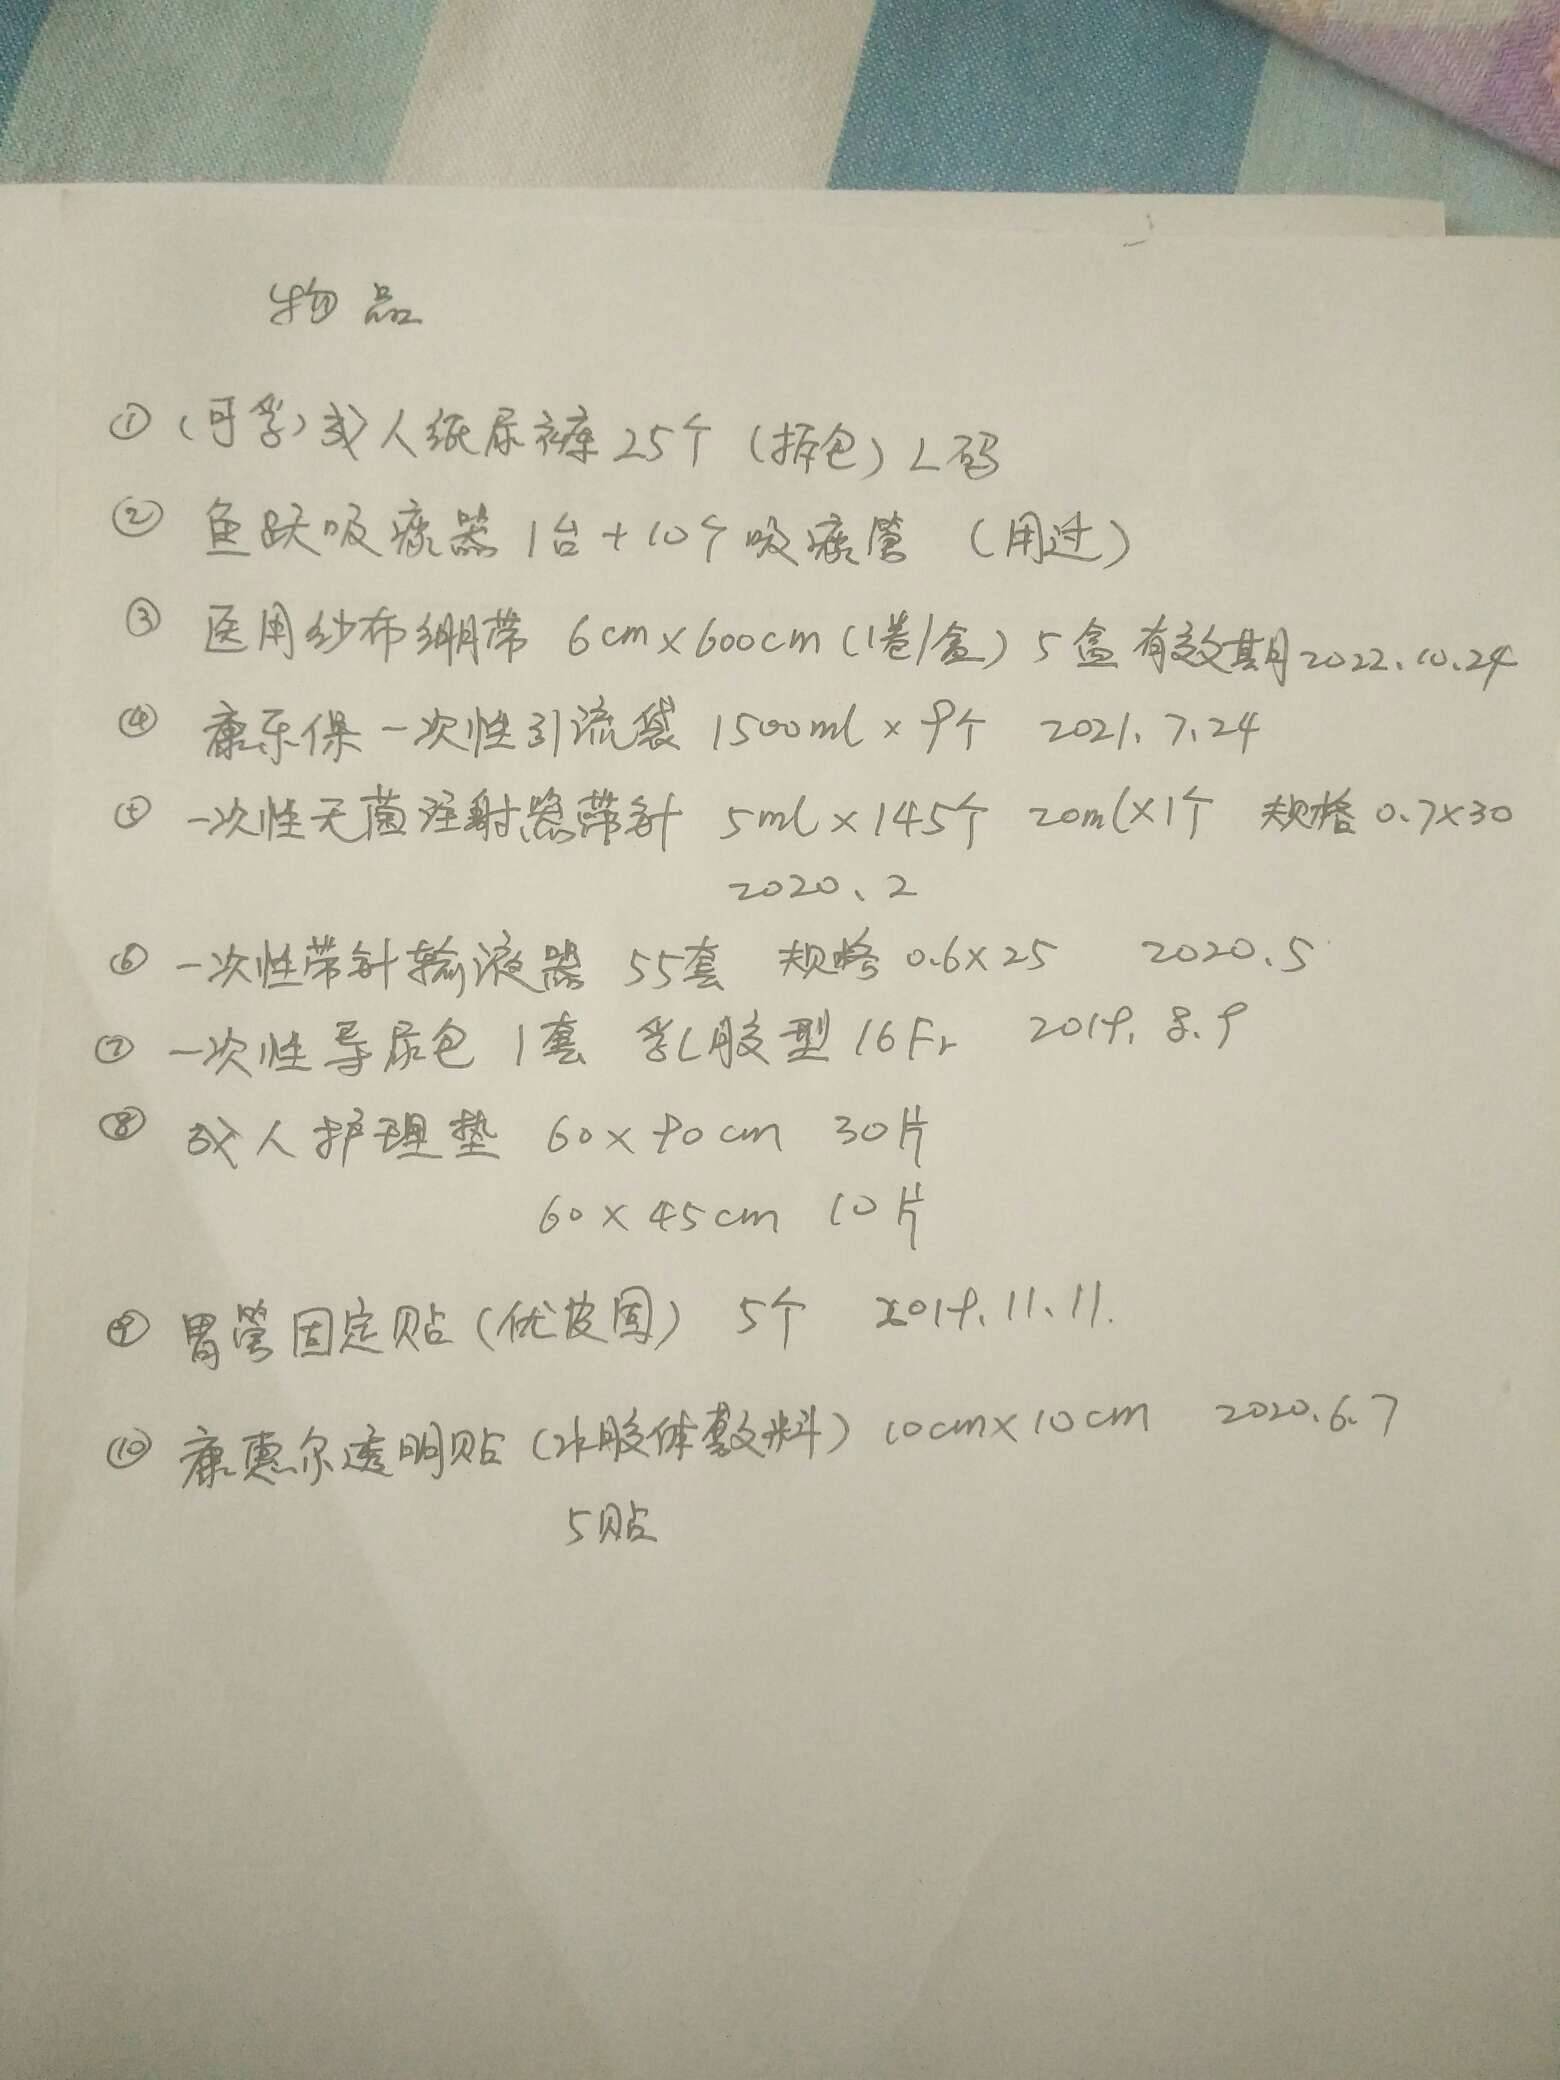 物品
① (可孚)成人纸尿裤25个 (拆包) L码
② 鱼跃吸痰器1台+10个吸痰管 (用过)
③ 医用纱布绷带 6cm×600cm(1卷/盒) 5盒 有效期2022.10.24
④ 康乐保一次性引流袋 1500ml×9个 2021.7.24
⑤ 一次性无菌注射器带针 5ml×145个 20ml×1个 规格0.7×30
2020.2
⑥ 一次性带针输液器 55套 规格0.6×25 2020.5
⑦ 一次性导尿包 1套 乳胶型16Fr 2019.8.9
⑧ 成人护理垫 60×90cm 30片
60×45cm 10片
⑨ 胃管固定贴(优皮固) 5个 2019.11.11.
⑩ 康惠尔透明贴(水胶体敷料) 10cm×10cm 2020.6.7
5贴